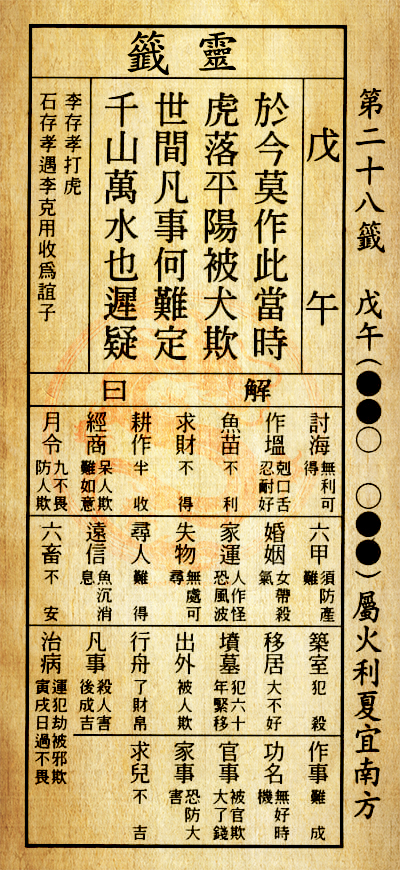 第二十八籤 戊午(●●○ ○●●)屬火利夏宜南方
靈籤
戊午
於今莫作此當時
虎落平陽被犬欺
世間凡事何難定
千山萬水也遲疑
李存孝打虎
石存孝遇李克用收為誼子
解曰
討海 無利可得
作塭 剋口舌忍耐好
魚苗 不利
求財 不得
耕作 半收
經商 呆人欺難如意
月令 九不畏防人欺
六甲 須防產難
婚姻 女帶殺氣
家運 人作怪恐風波
失物 無處可尋
尋人 難得
遠信 魚沉消息
六畜 不安
築室 犯殺
移居 大不好
墳墓 犯六十年緊移
出外 被人欺
行舟 了財帛
凡事 殺人害後成吉
治病 運犯劫被邪欺寅戌日過不畏
作事 難成
功名 無好時機
官事 被官欺大了錢
家事 恐防大害
求兒 不吉